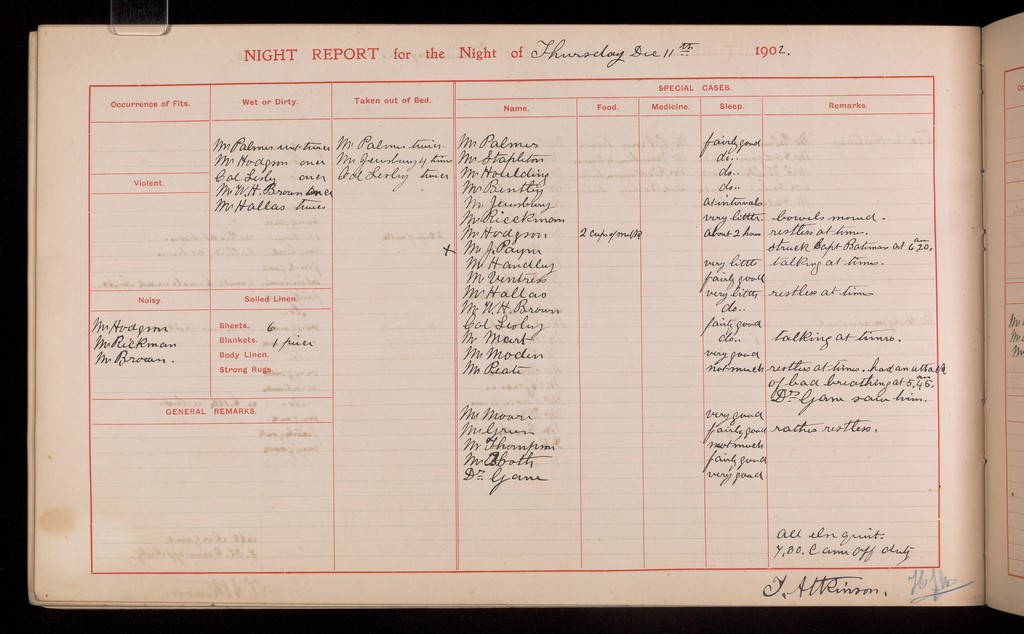 NIGHT REPORT for the Night of Thursday Dec 11th 1902.
Occurrence of Fits.
Wet or Dirty.
Taken out of Bed.
SPECIAL CASES.
Name. Food. Medicine. Sleep. Remarks.
Mr Palmer wet twice
Mr Hodgson once
Col Lesly once
Mr W. H. Brown once
Mr Hallas twice
Mr Palmer twice
Mr Jewsbury 4 times
Col Lesly twice
Violent.
Noisy.
Mr Hodgson
Mr Rickman
Mr Brown.
Soiled Linen
Sheets. 6
Blankets. 1 piece
Body Linen.
Strong Rugs.
GENERAL REMARKS.
Mr Palmer fairly good
Mr Stapleton do..
Mr Houlding do..
Mr Bentley do..
Mr Jewsbury at intervals
Mr Rickman very little bowels moved.
Mr Hodgson 2 cups of milk about 2 hours restless at times.
x Mr J. Payne struck Capt Bateman at 6.20. am
Mr Handley very little talking at times.
Mr Ventress fairly good
Mr Hallas very little restless at times
Mr W. H. Brown do..
Col Lesly fairly good
Mr Mart do.. talking at times.
Mr Moden very good
Mr Peate not much restless at times. had an attack
of bad breathing at 5.45. am
Dr Gane saw him.
Mr Moore very good
Mr Green fairly good rather restless.
Mr Thompson not much
Mr Booth fairly good
Dr Gane very good
All else quiet.
7.30. Came off duty
T. Atkinson.